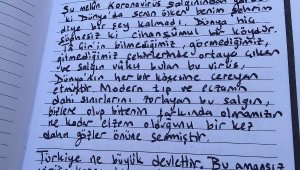 Şu melun Koronavirüs salgınından
ki Dünya'da senin ülken benim şehrim
diye bir şey kalmadı. Dünya hiç
şüphesiz ki cihanşümul bir köydür.
Ta Çin'in bilmediğimiz, görmediğimiz,
gitmediğimiz şehirlerinde ortaya çıkan
ve salgın vukuu bulan bu virüs,
Dünya'nın her bir köşesine cereyan
etmiştir. Modern tıp ve eczanın
dahi sınırlarını zorlayan bu salgın,
bizlere olup bitenin farkında olmamızın
ne kadar elzem olduğunu bir kez
daha gözler önüne sermiştir.
Türkiye ne büyük devlettir. Bu amansız